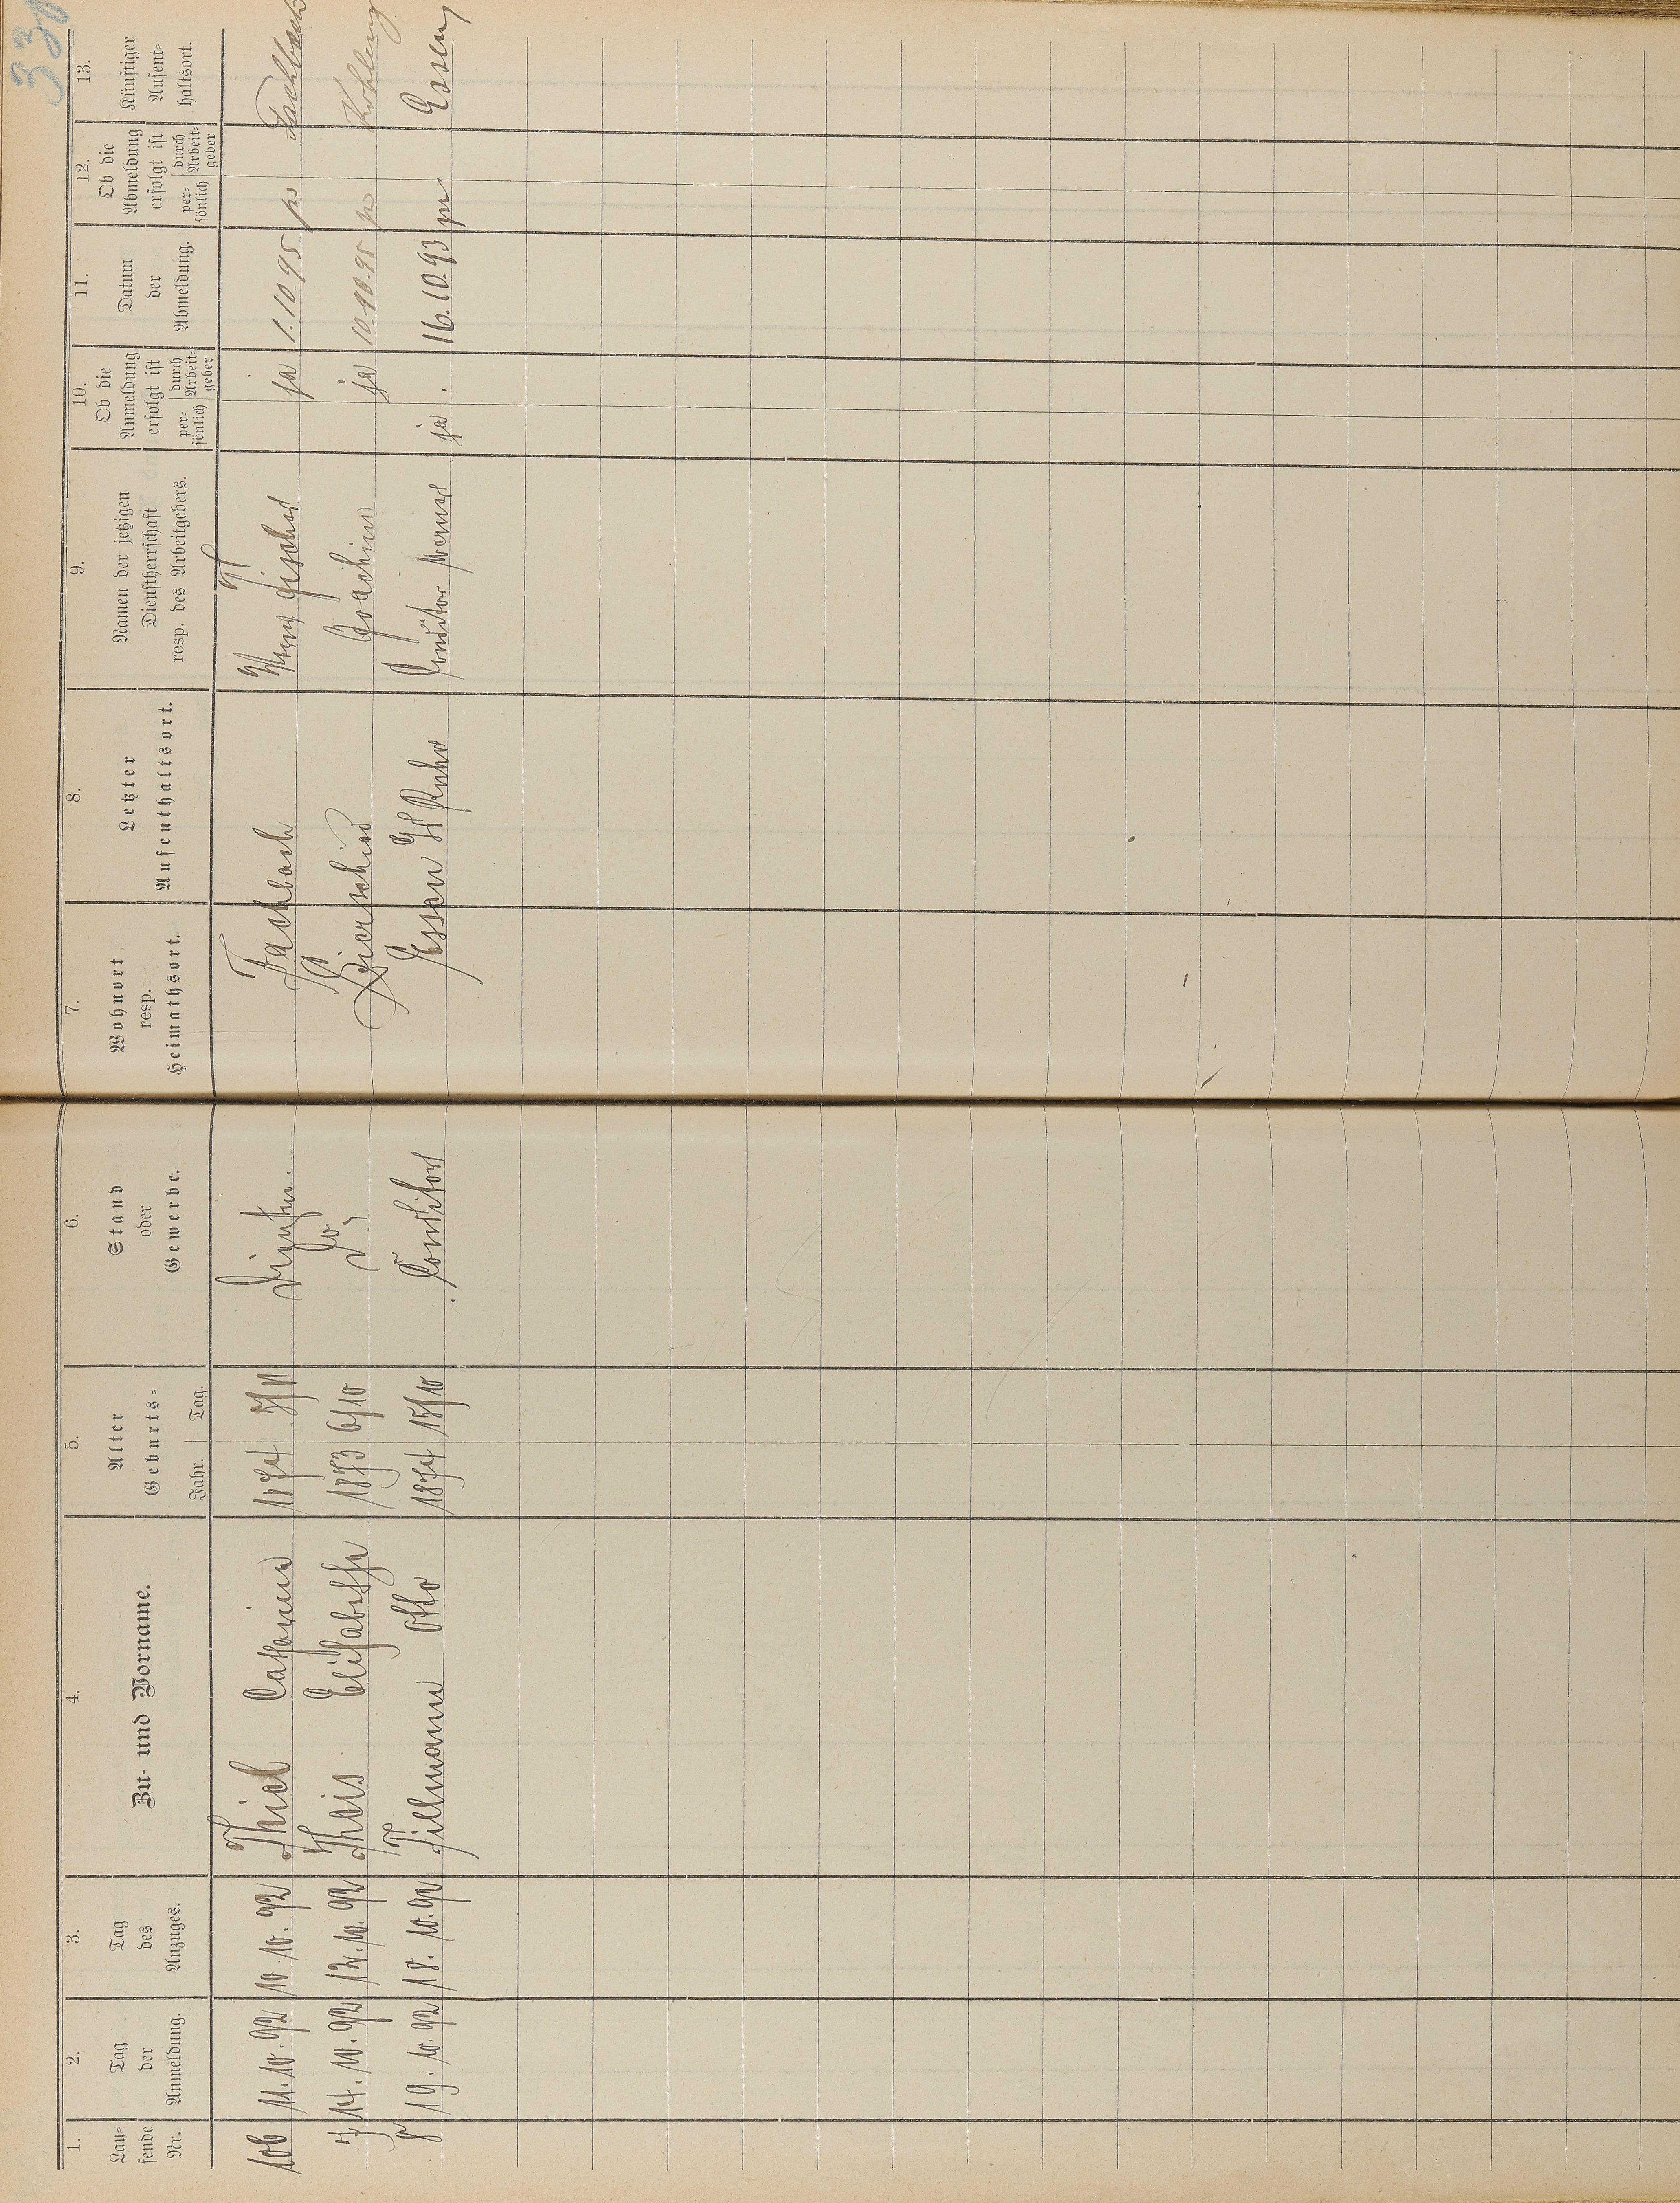 33
1. Laufende Nr.
2. Tag der Anmeldung.
3. Tag des Anzuges.
4. Zu- und Vorname.
5. Alter Geburts= Jahr. Tag.
6. Stand oder Gewerbe.
7. Wohnort resp. Heimathsort.
8. Letzter Aufenthaltsort.
9. Namen der jetzigen Dienstherrschaft resp. des Arbeitgebers.
10. Ob die Anmeldung erfolgt ist per= sönlich durch Arbeit= geber
11. Datum der Abmeldung.
12. Ob die Abmeldung erfolgt ist per= sönlich durch Arbeit= geber
13. Künftiger Aufent= haltsort.
106 11.10.92 10.10.92 Thiel Catharina 1874 Fachbach Fischer ja 1.10.95 Fachbach
7 14.10.92 12.10.92 Theis Elisabetha 1873 6/10 do. Joachim ja 10.10.95
8 19.10.92 18.10.92 Tillmann Otto 1874 15/10 Conditor Essen Ruhr Conditor Werner ja 16.10.93 Essen